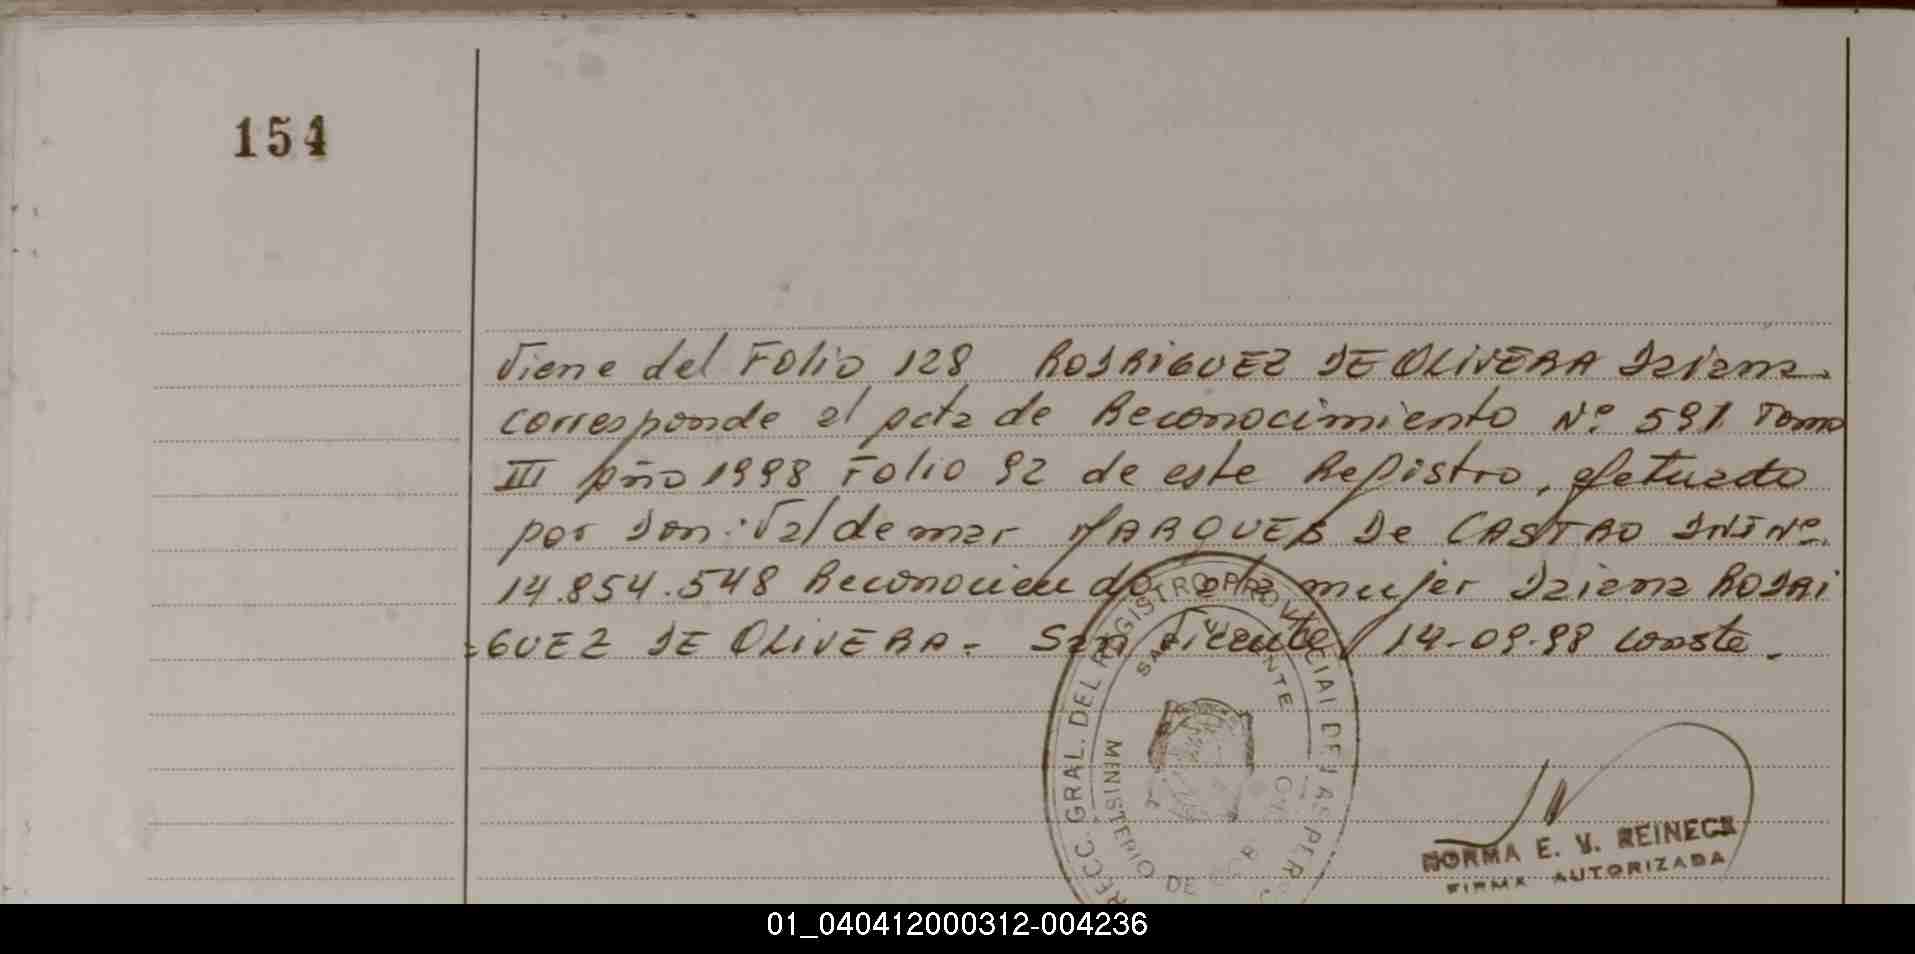 154
Viene del Folio 128 RODRIGUEZ DE OLIVERA Daiana.
corresponde al acta de Reconocimiento Nº 591 Tomo
III Año 1998 Folio 92 de este Registro, efetuado
por Don: Valdemar MARQUES De CASTRO DNI Nº
14.854.548 Reconociendo a la mujer Daiana RODRI
=GUEZ DE OLIVERA - San Vicente, 14-09-98 Conste.
RECC. GRAL. DEL REGISTRO PROVINCIAL DE LAS PERS
SAN VICENTE
MINISTERIO DE GOB
NORMA E. V. REINECK
FIRMA AUTORIZADA
01_040412000312-004236